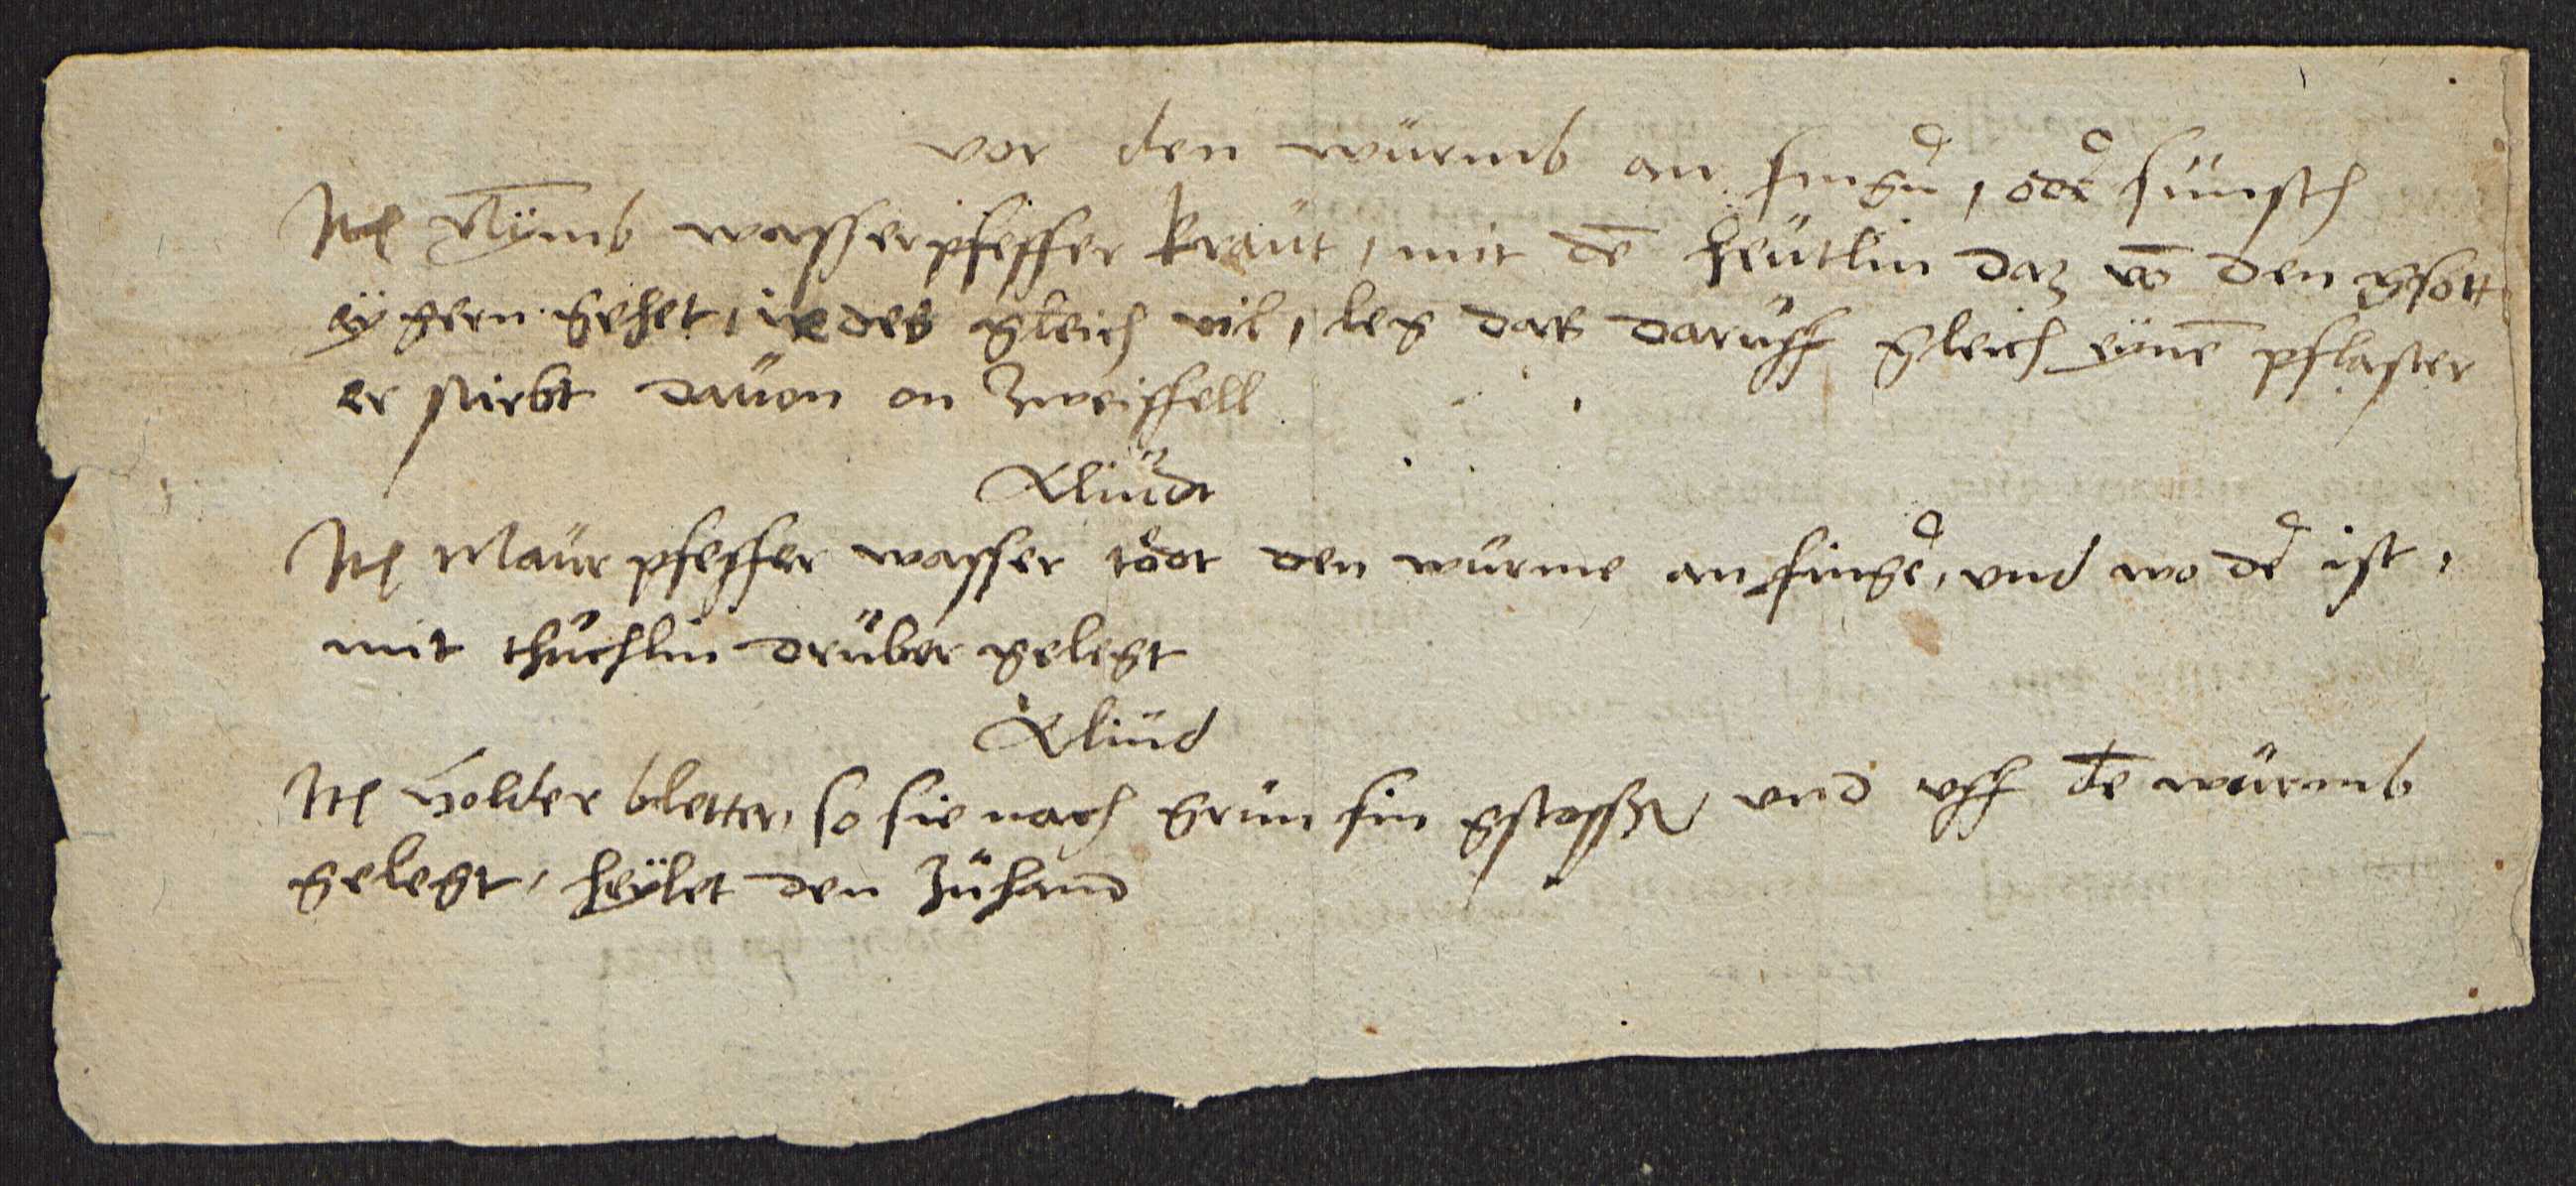 vor den wurmb an fingern, oder sunst
Item Nymb wasserpfeffer kraut, mit dem heutlin daz von den gsott
eygern gehet, iedes gleich vil, leg das daruff gleich eynem pflaster
er stirbt dauon on zweiffell
Aliudt
Item Maur pfeffer wasser tödt den wurme am finger, vnd wo der ist,
mit thuchlin drüber gelegt
Aliud
Item Holder bletter, so sie noch grun sin gstossen vnd vff den wurmb
gelegt, heylet den zuhand